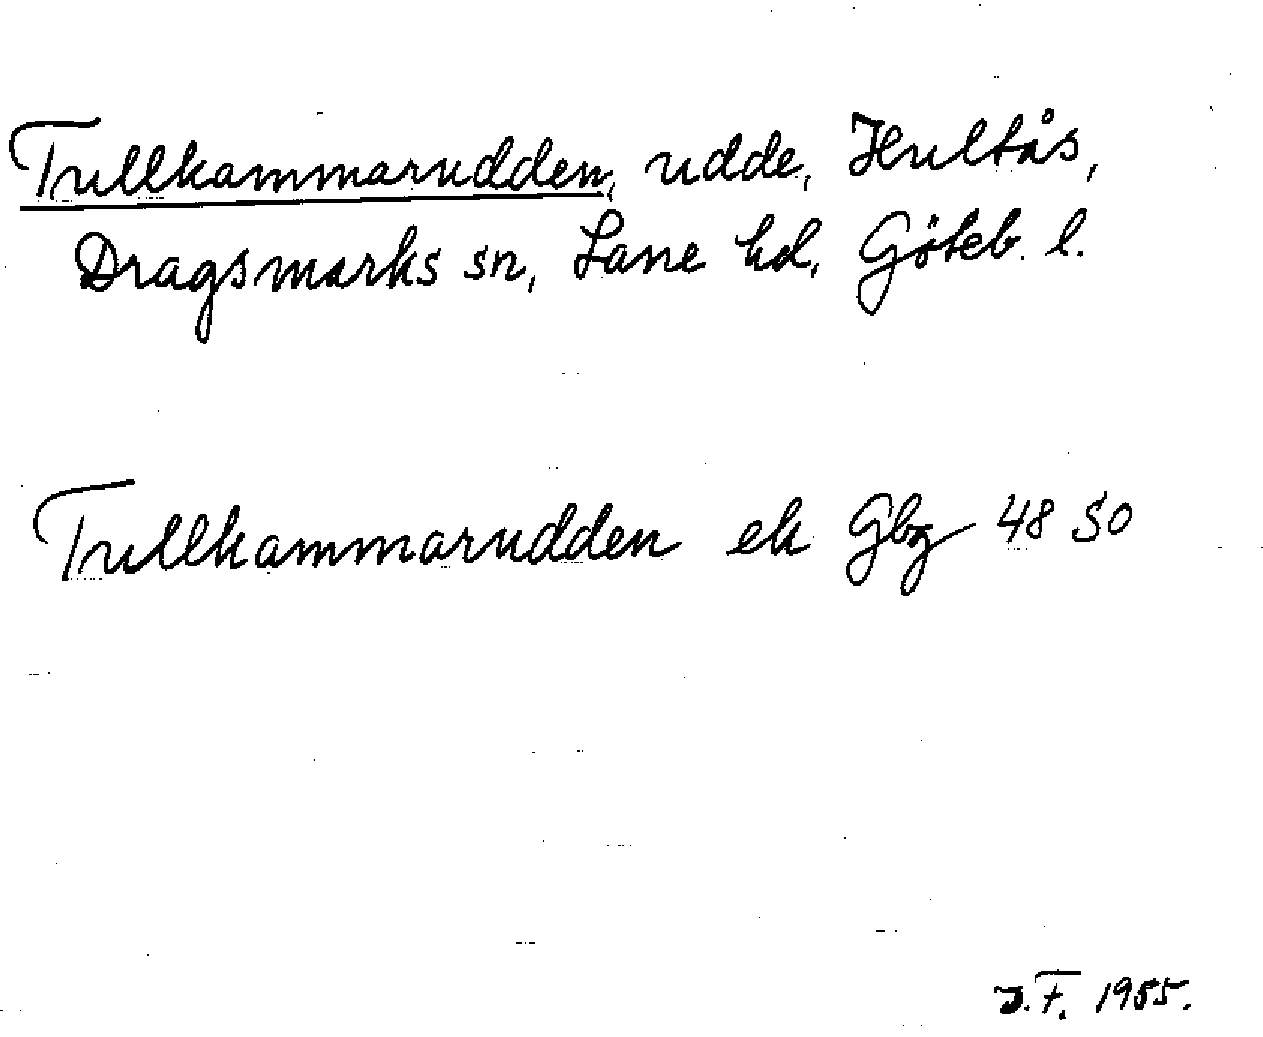 Tullkammarudden, udde, Hultås,
Dragsmarks sn, Lane hd, Göteb. l.
Tullkammarudden ek Gbg 48 SO
J.F. 1955.